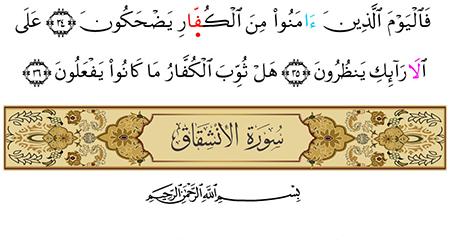 فَالْيَوْمَ الَّذِينَ ءَامَنُواْ مِنَ الْكُفّ۪ارِ يَضْحَكُونَ ۝٣٤ عَلَى
اَلَارَآئِكِ يَنظُرُونَ ۝٣٥ هَلْ ثُوِّبَ الْكُفَّارُ مَا كَانُواْ يَفْعَلُونَ ۝٣٦
سُورَةُ الِانْشِقَاقِ
بِسْمِ اللَّهِ الرَّحْمَٰنِ الرَّحِيمِ